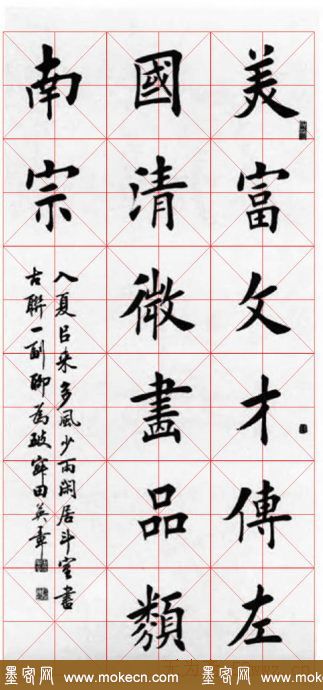 美富文才傳左
國清微畫品類
南宗
入夏吕来多風少雨閑居斗室書
古聯一副聊為破寂田英章
墨客网 www.mokecn.com 墨客网 www.mokecn.com